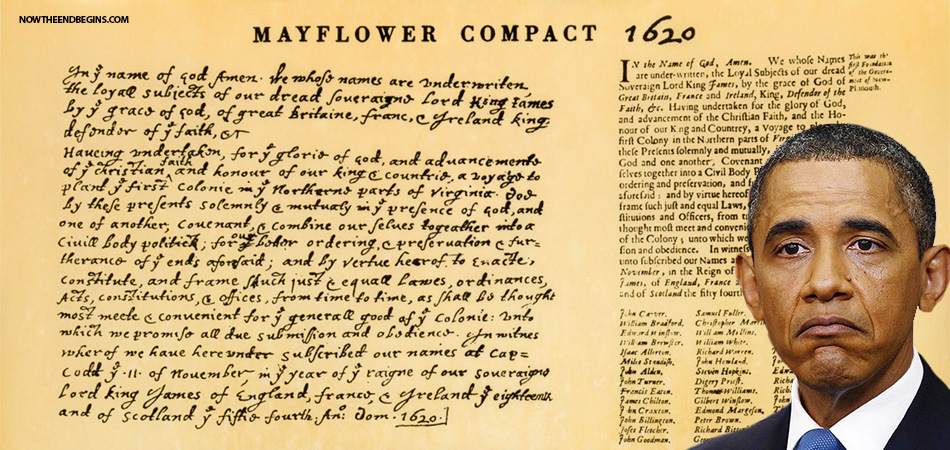 NOWTHEENDBEGINS.COM
MAYFLOWER COMPACT 1620
In yͤ name of god Amen. We whose names are vnderwriten
the loyall subjects of our dread soveraigne Lord King James
by yͤ grace of god, of great Britaine, franc, & Ireland king,
defendor of yͤ faith, &c
Haveing vndertaken, for yͤ glorie of god, and advancemente
of yͤ christian faith and honour of our king & countrie, a voyage to
plant yͤ first Colonie in yͤ Northerne parts of Virginia. Doe
by these presents solemnly & mutualy in yͤ presence of god, and
one of another, covenant, & combine our selves togeather into a
Civill body politick; for our better ordering, & preservation & fur=
therance of yͤ ends aforesaid; and by vertue hearof to Enacte,
constitute, and frame such just & equall Lawes, ordinances,
Acts, constitutions, & offices, from time to time, as shall be thought
most meete & convenient for yͤ generall good of yͤ Colonie: Vnto
which we promise all due submission and obedience. In witnes
wherof we have hereunder subscribed our names at Cap=
Codd yͤ .11. of November, in yͤ year of yͤ raigne of our soveraigne
Lord king James of England, france, & Ireland yͤ eighteenth
and of Scotland yͤ fiftie fourth. An: Dom. 1620.]
IN the Name of God, Amen. We whose Names
are under-written, the Loyal Subjects of our dread
Sovereign Lord King James, by the grace of God of
Great Britain, France and Ireland, King, Defender of the
Faith, &c. Having undertaken for the glory of God,
and advancement of the Christian Faith, and the Ho-
nour of our King and Countrey, a Voyage to
first Colony in the Northern parts of
these Presents solemnly and mutually,
God and one another, Covenant
selves together into a Civil Body
ordering and preservation, and
aforesaid: and by virtue hereof
frame such just and equal Laws,
stitutions and Officers, from
thought most meet and
of the Colony; unto which
sion and obedience. In
unto subscribed our Names
November, in the Reign of
James, of England, France
and of Scotland the fifty
This was the
first Foundation
of the Govern-
ment of New-
Plimouth.
John Carver,
William Bradford,
Edward Winslow,
William Brewster,
Isaac Allerton,
Miles Standish,
John Alden,
John Turner,
Francis Eaton,
James Chilton,
John Craxton,
John Billington,
Joses Fletcher,
John Goodman,
Samuel Fuller,
Christopher
William Mullins,
William White,
Richard Warren,
John Howland,
Steven Hopkins,
Digery Priest,
Thomas Williams,
Gilbert Winslow,
Edmond Margeson,
Peter Brown,
Richard
George